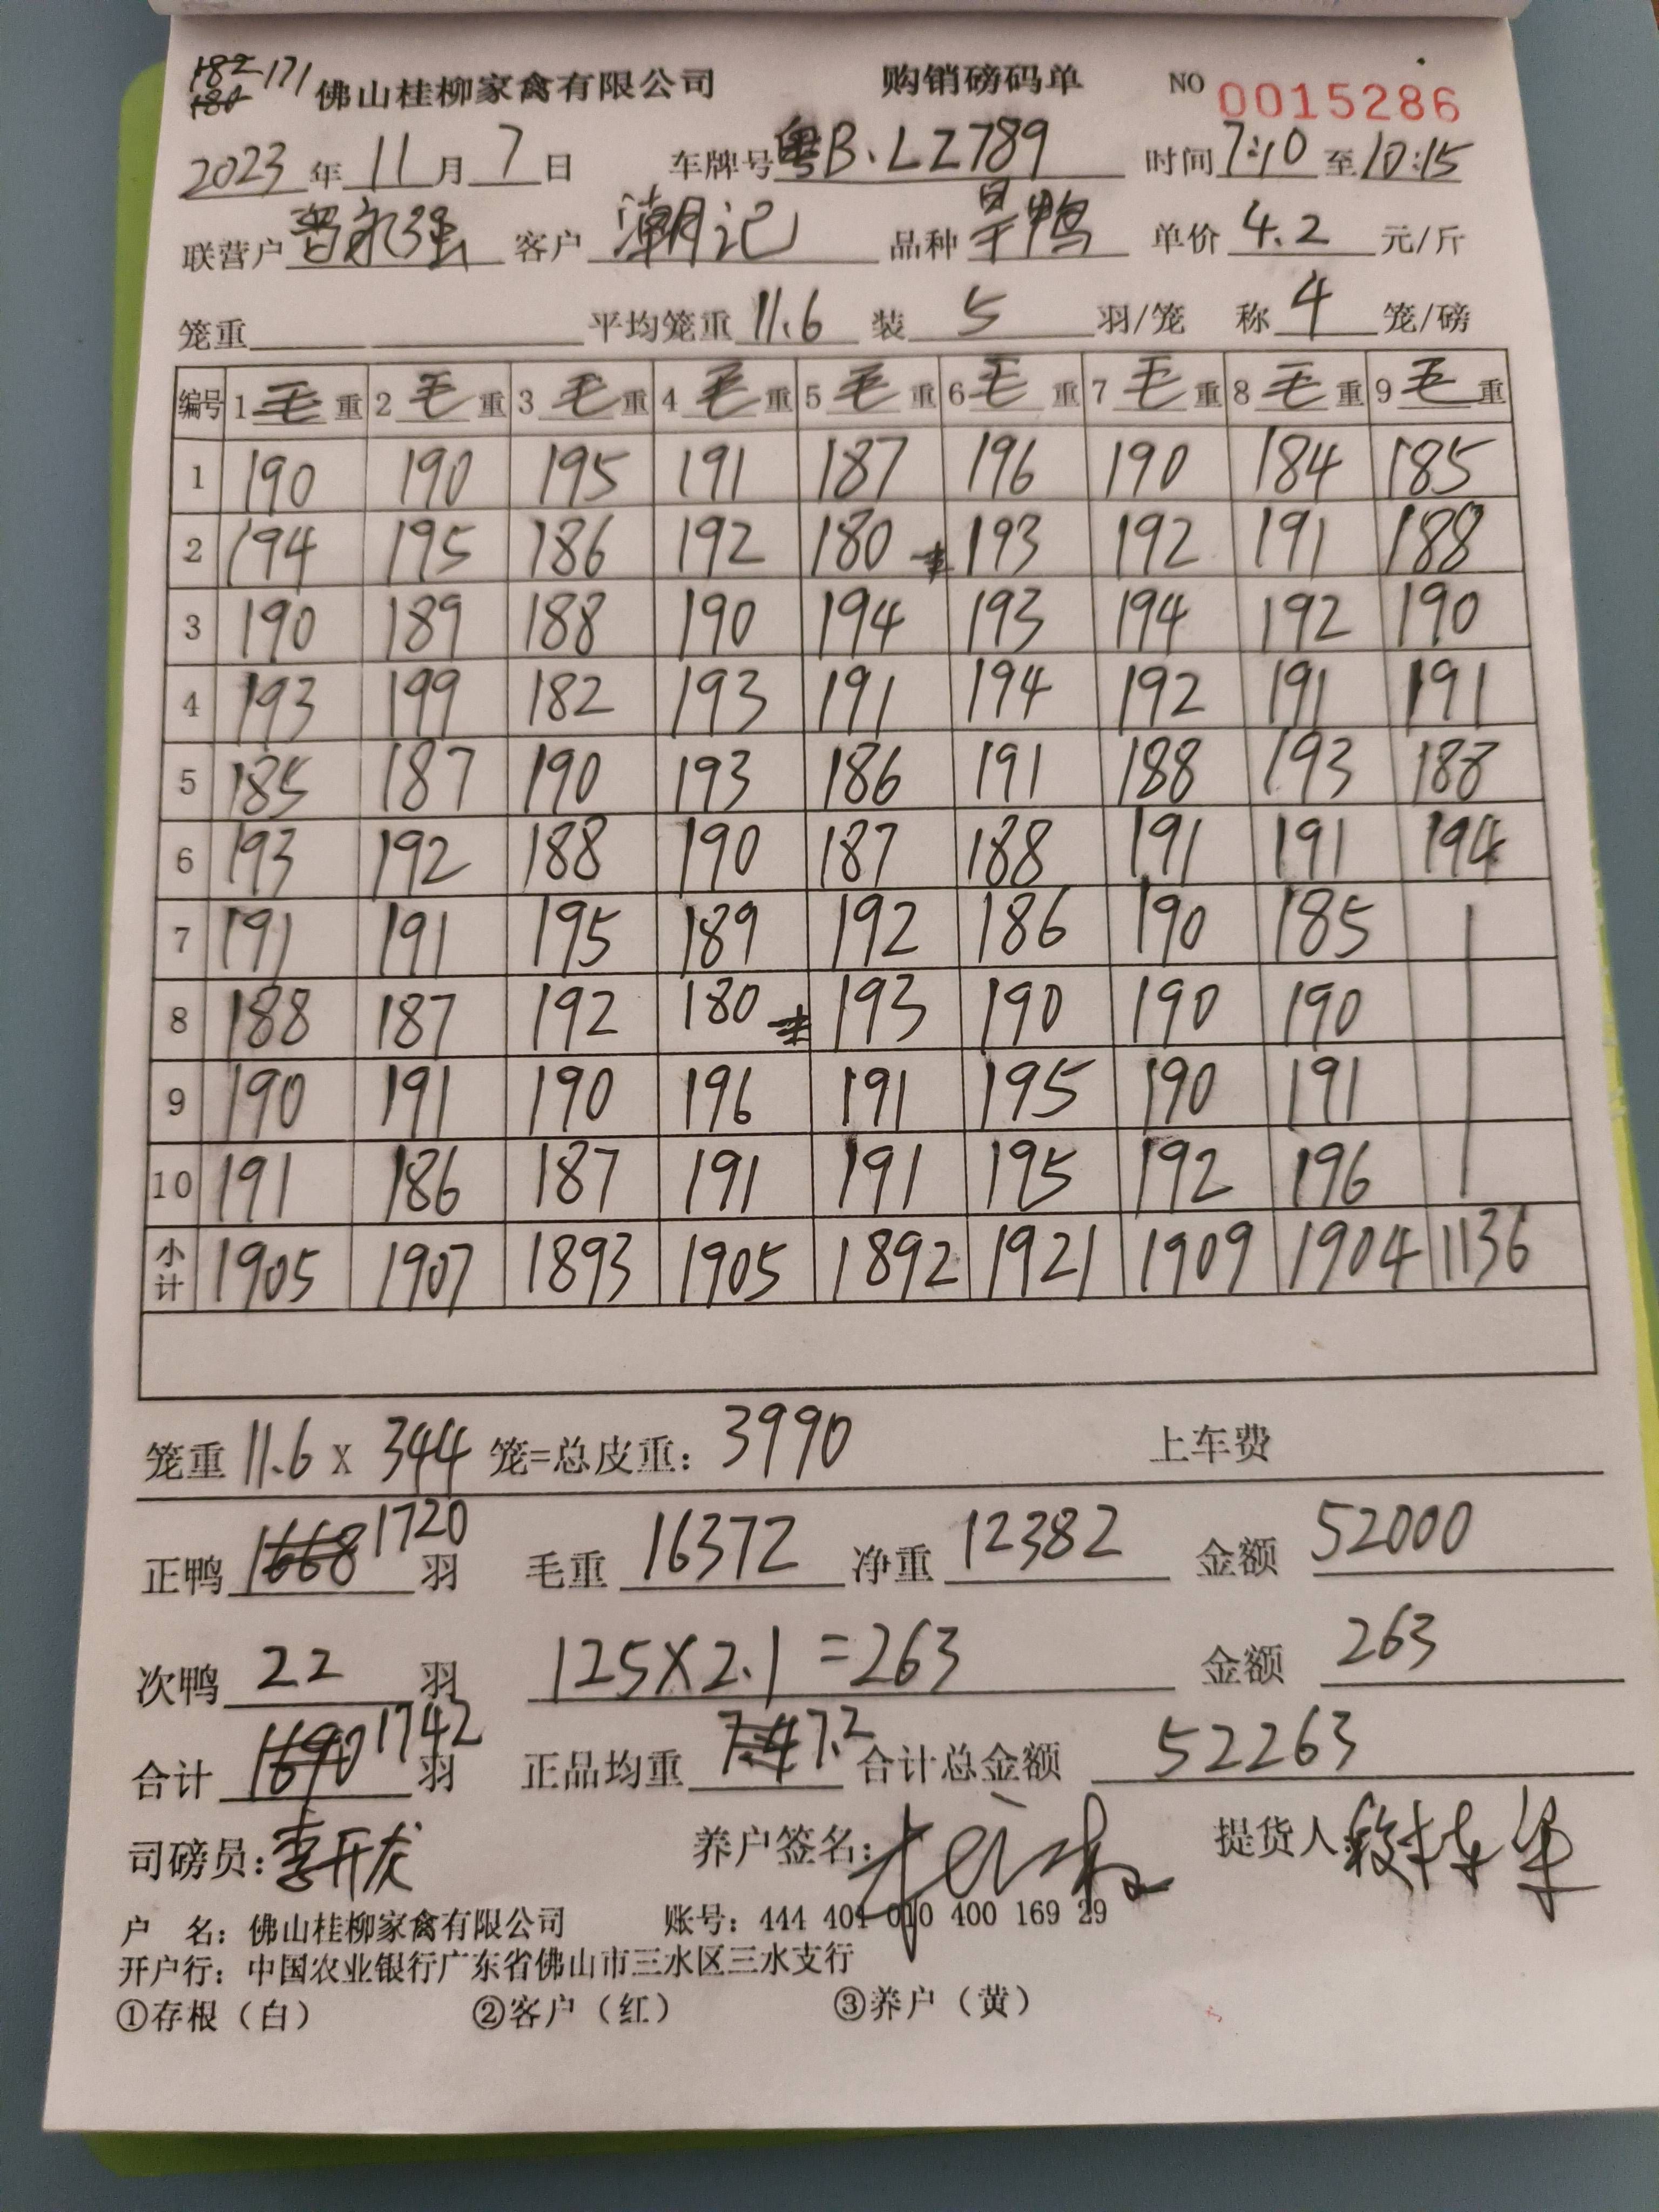 182 171
180
佛山桂柳家禽有限公司 购销磅码单 NO 0015286
2023年11月7日 车牌号粤B.LZ789 时间7:10至10:15
联营户 永强 客户 潮记 品种 旱鸭 单价 4.2 元/斤
笼重 平均笼重 11.6 装 5 羽/笼 称 4 笼/磅
编号 1毛重 2毛重 3毛重 4毛重 5毛重 6毛重 7毛重 8毛重 9毛重
1 190 190 195 191 187 196 190 184 185
2 194 195 186 192 180 193 192 191 188
3 190 189 188 190 194 193 194 192 190
4 193 199 182 193 191 194 192 191 191
5 185 187 190 193 186 191 188 193 188
6 193 192 188 190 187 188 191 191 194
7 191 191 195 189 192 186 190 185
8 188 187 192 180 193 190 190 190
9 190 191 190 196 191 195 190 191
10 191 186 187 191 191 195 192 196
小计 1905 1907 1893 1905 1892 1921 1909 1904 1136
笼重 11.6 X 344 笼=总皮重: 3990 上车费
正鸭 1668 1720 羽 毛重 16372 净重 12382 金额 52000
次鸭 22 羽 125X2.1=263 金额 263
合计 1690 1742 羽 正品均重 7.4 7.2 合计总金额 52263
司磅员:李开龙 养户签名: 提货人:
户 名: 佛山桂柳家禽有限公司 账号: 444 401 010 400 169 29
开户行: 中国农业银行广东省佛山市三水区三水支行
①存根（白） ②客户（红） ③养户（黄）